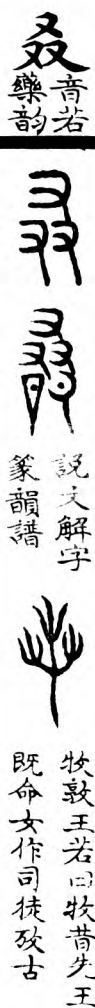 叒
音若
藥韵
說文解字
篆韻譜
牧敦王若曰牧昔先王
既命女作司徒攷古